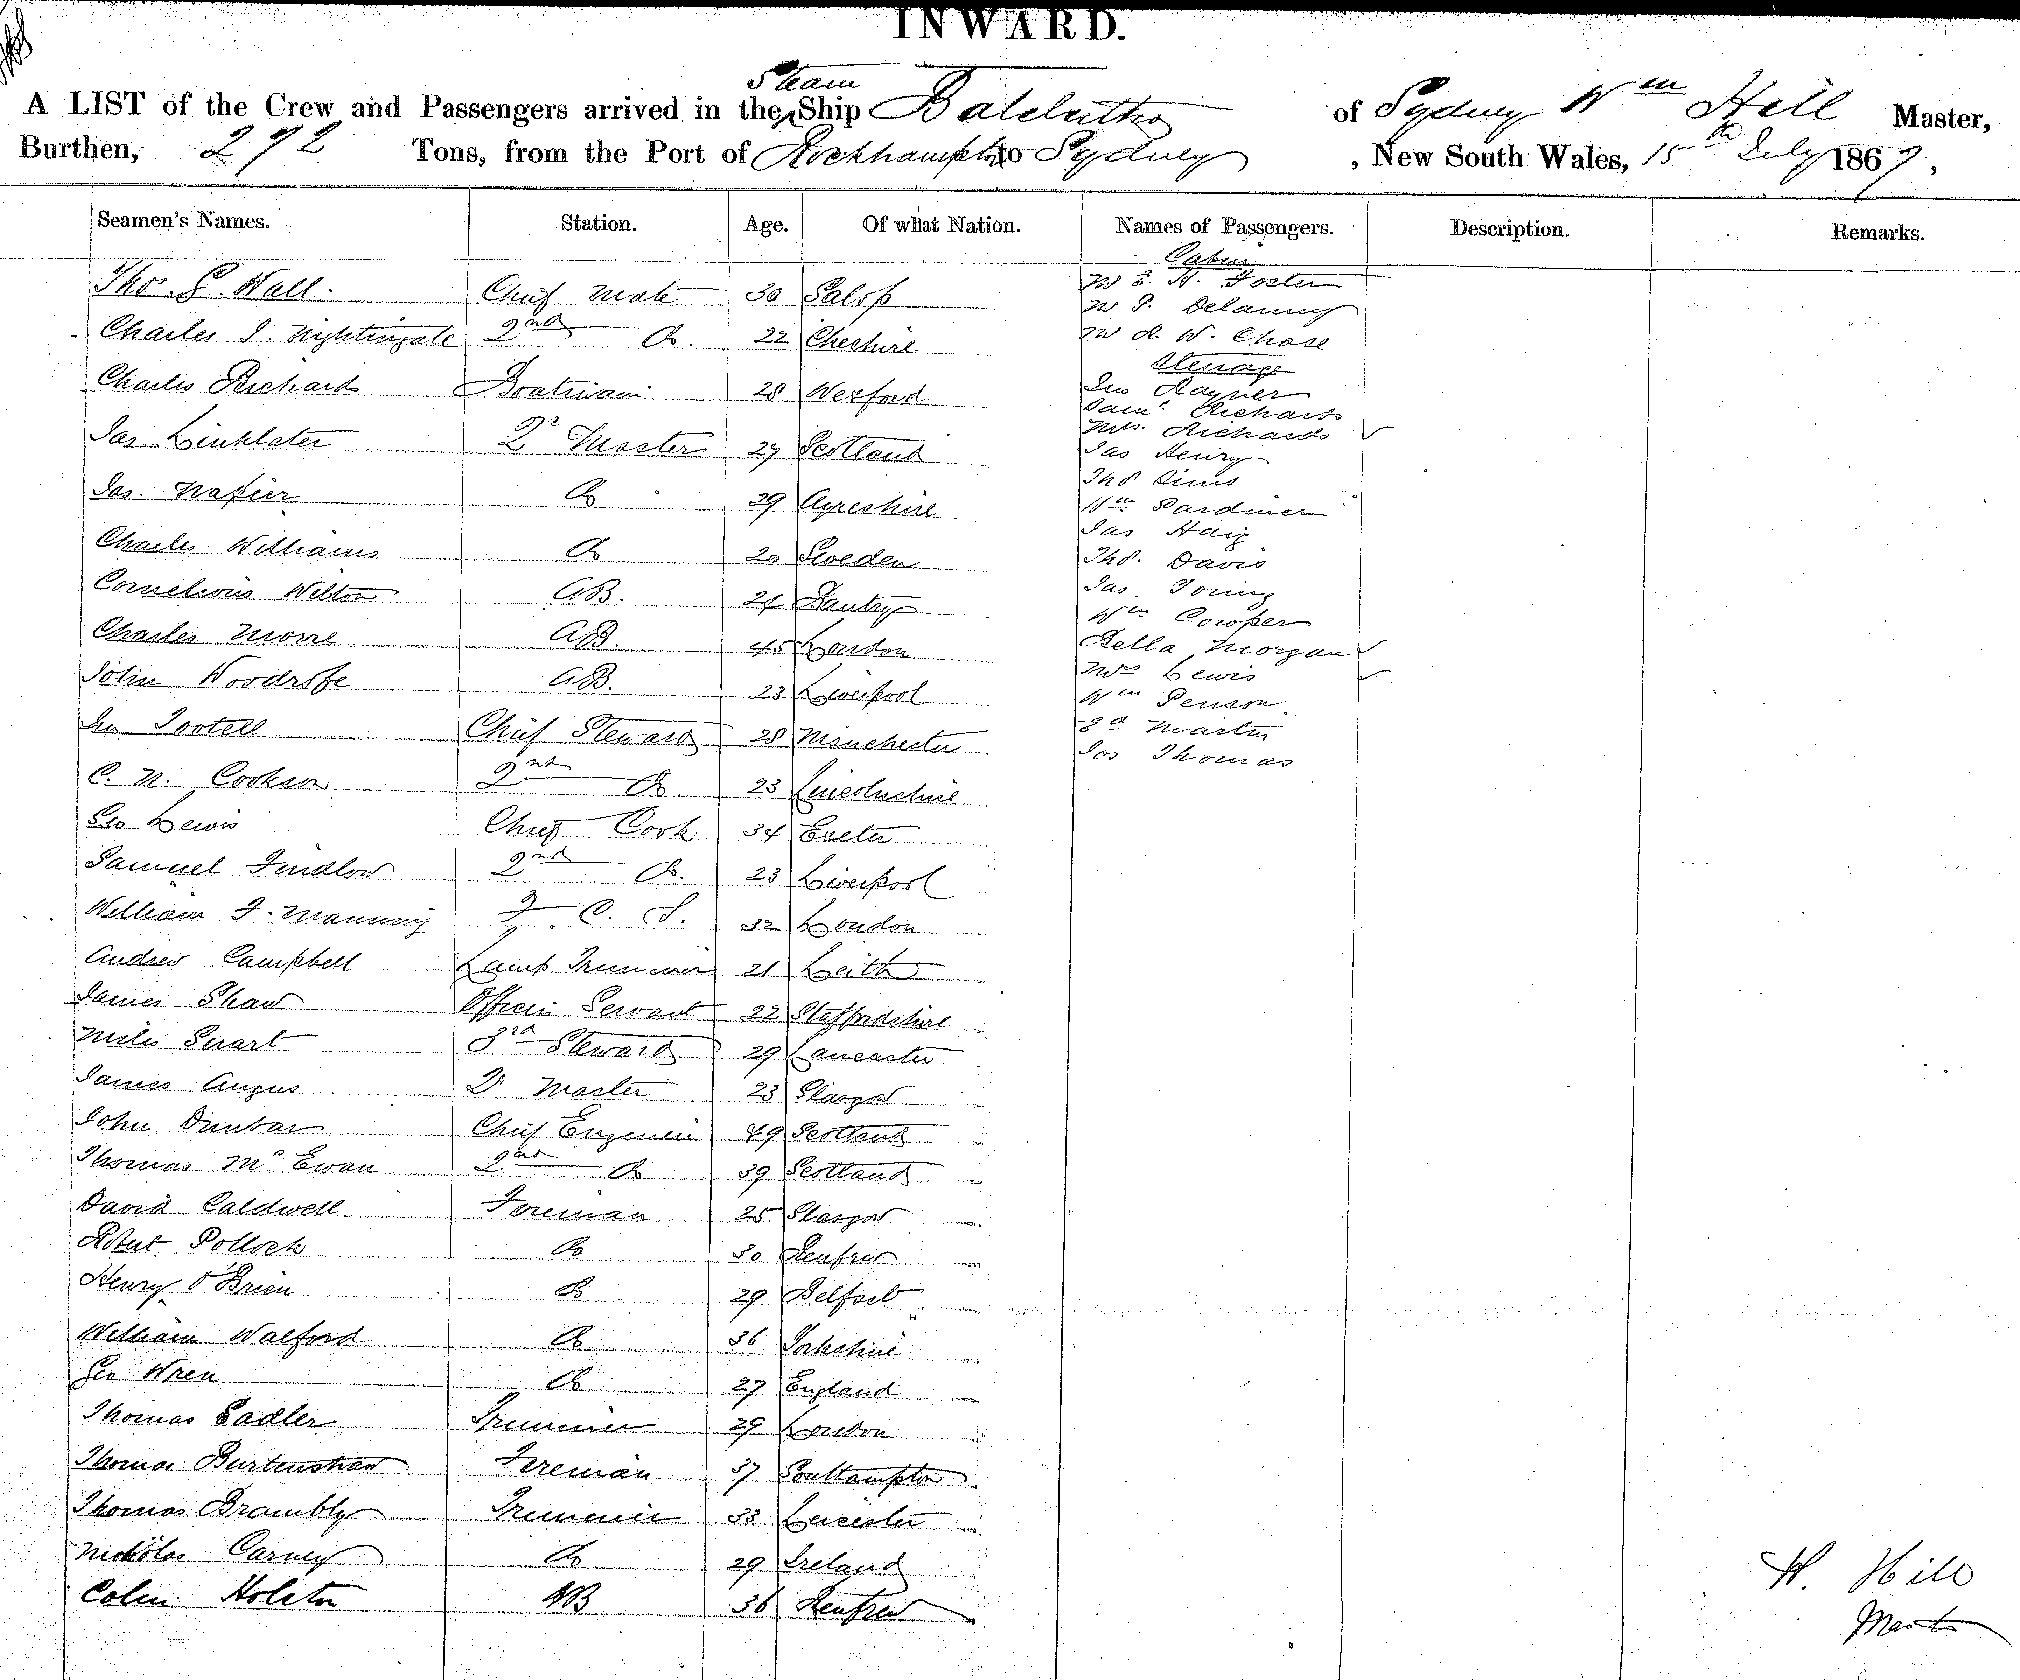 INWARD.
A LIST of the Crew and Passengers arrived in the Steam Ship Balclutha of Sydney Wm Hill Master,
Burthen, 272 Tons, from the Port of Rockhampton to Sydney, New South Wales, 15th July 1867,
Seamen's Names. Station. Age. Of what Nation. Names of Passengers. Description. Remarks.
Thos. G. Wall. Chief Mate 30 Salop
Charles J. Nightingale 2nd Do. 22 Cheshire
Charles Richards Boatswain 28 Wexford
Jas Linklater Qr Master 27 Scotland
Jas. Napier Do 39 Ayreshire
Charles Williams Do 20 Sweden
Cornelious Welton AB. 24
Charles Moore AB. 45 London
John Woodrofe AB. 23 Liverpool
Jno Tootell Chief Steward 28 Manchester
C. N. Cookson 2nd Do 23 Lincolnshire
Geo Lewis Chief Cook 34 Exeter
Samuel Findlow 2nd Do. 23 Liverpool
William J. Manning F. C. S. 32 London
Andrew Campbell Lamp Trimmer 21 Leith
James Shaw Officers Servant 22 Staffordshire
Miles Smart 3rd Steward 29 Lancaster
James Angus Qr Master 23 Glasgow
John Dunbar Chief Engineer 49 Scotland
Thomas McEwan 2nd Do 39 Scotland
David Caldwell Foreman 25 Glasgow
Robut Pollock Do 30 Renfrew
Henry O'Brien Do 29 Belfast
William Walford Do 36 Yorkshire
Geo Wren Do 27 England
Thomas Sadler Trimmer 29 London
Thomas Burtenshaw Foreman 37 Southampton
Thomas Brambly Trimmer 33 Leicester
Nicholas Carney Do 29 Ireland
Colin Holston AB 36 Renfrew
Cabin
M S. H. Foster
M P. Delanney
M d. W. Chase
Steerage
Jno Rayner
Saml Richards
Mrs. Richards
Jas Henry
Thos Sims
Wm Gardiner
Jas Haig
Thos. Davis
Jas. Young
Wm Cowper
Bella Morgan
Mrs Lewis
Wm Penson
Ed Martin
Jos Thomas
W. Hill
Master